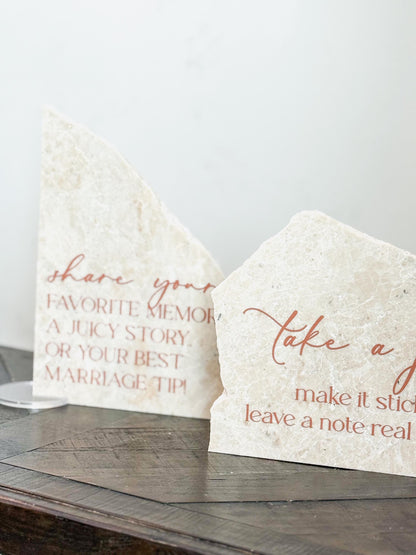 share your
FAVORITE MEMOR
A JUICY STORY,
OR YOUR BEST
MARRIAGE TIP!
take a
make it stic
leave a note real